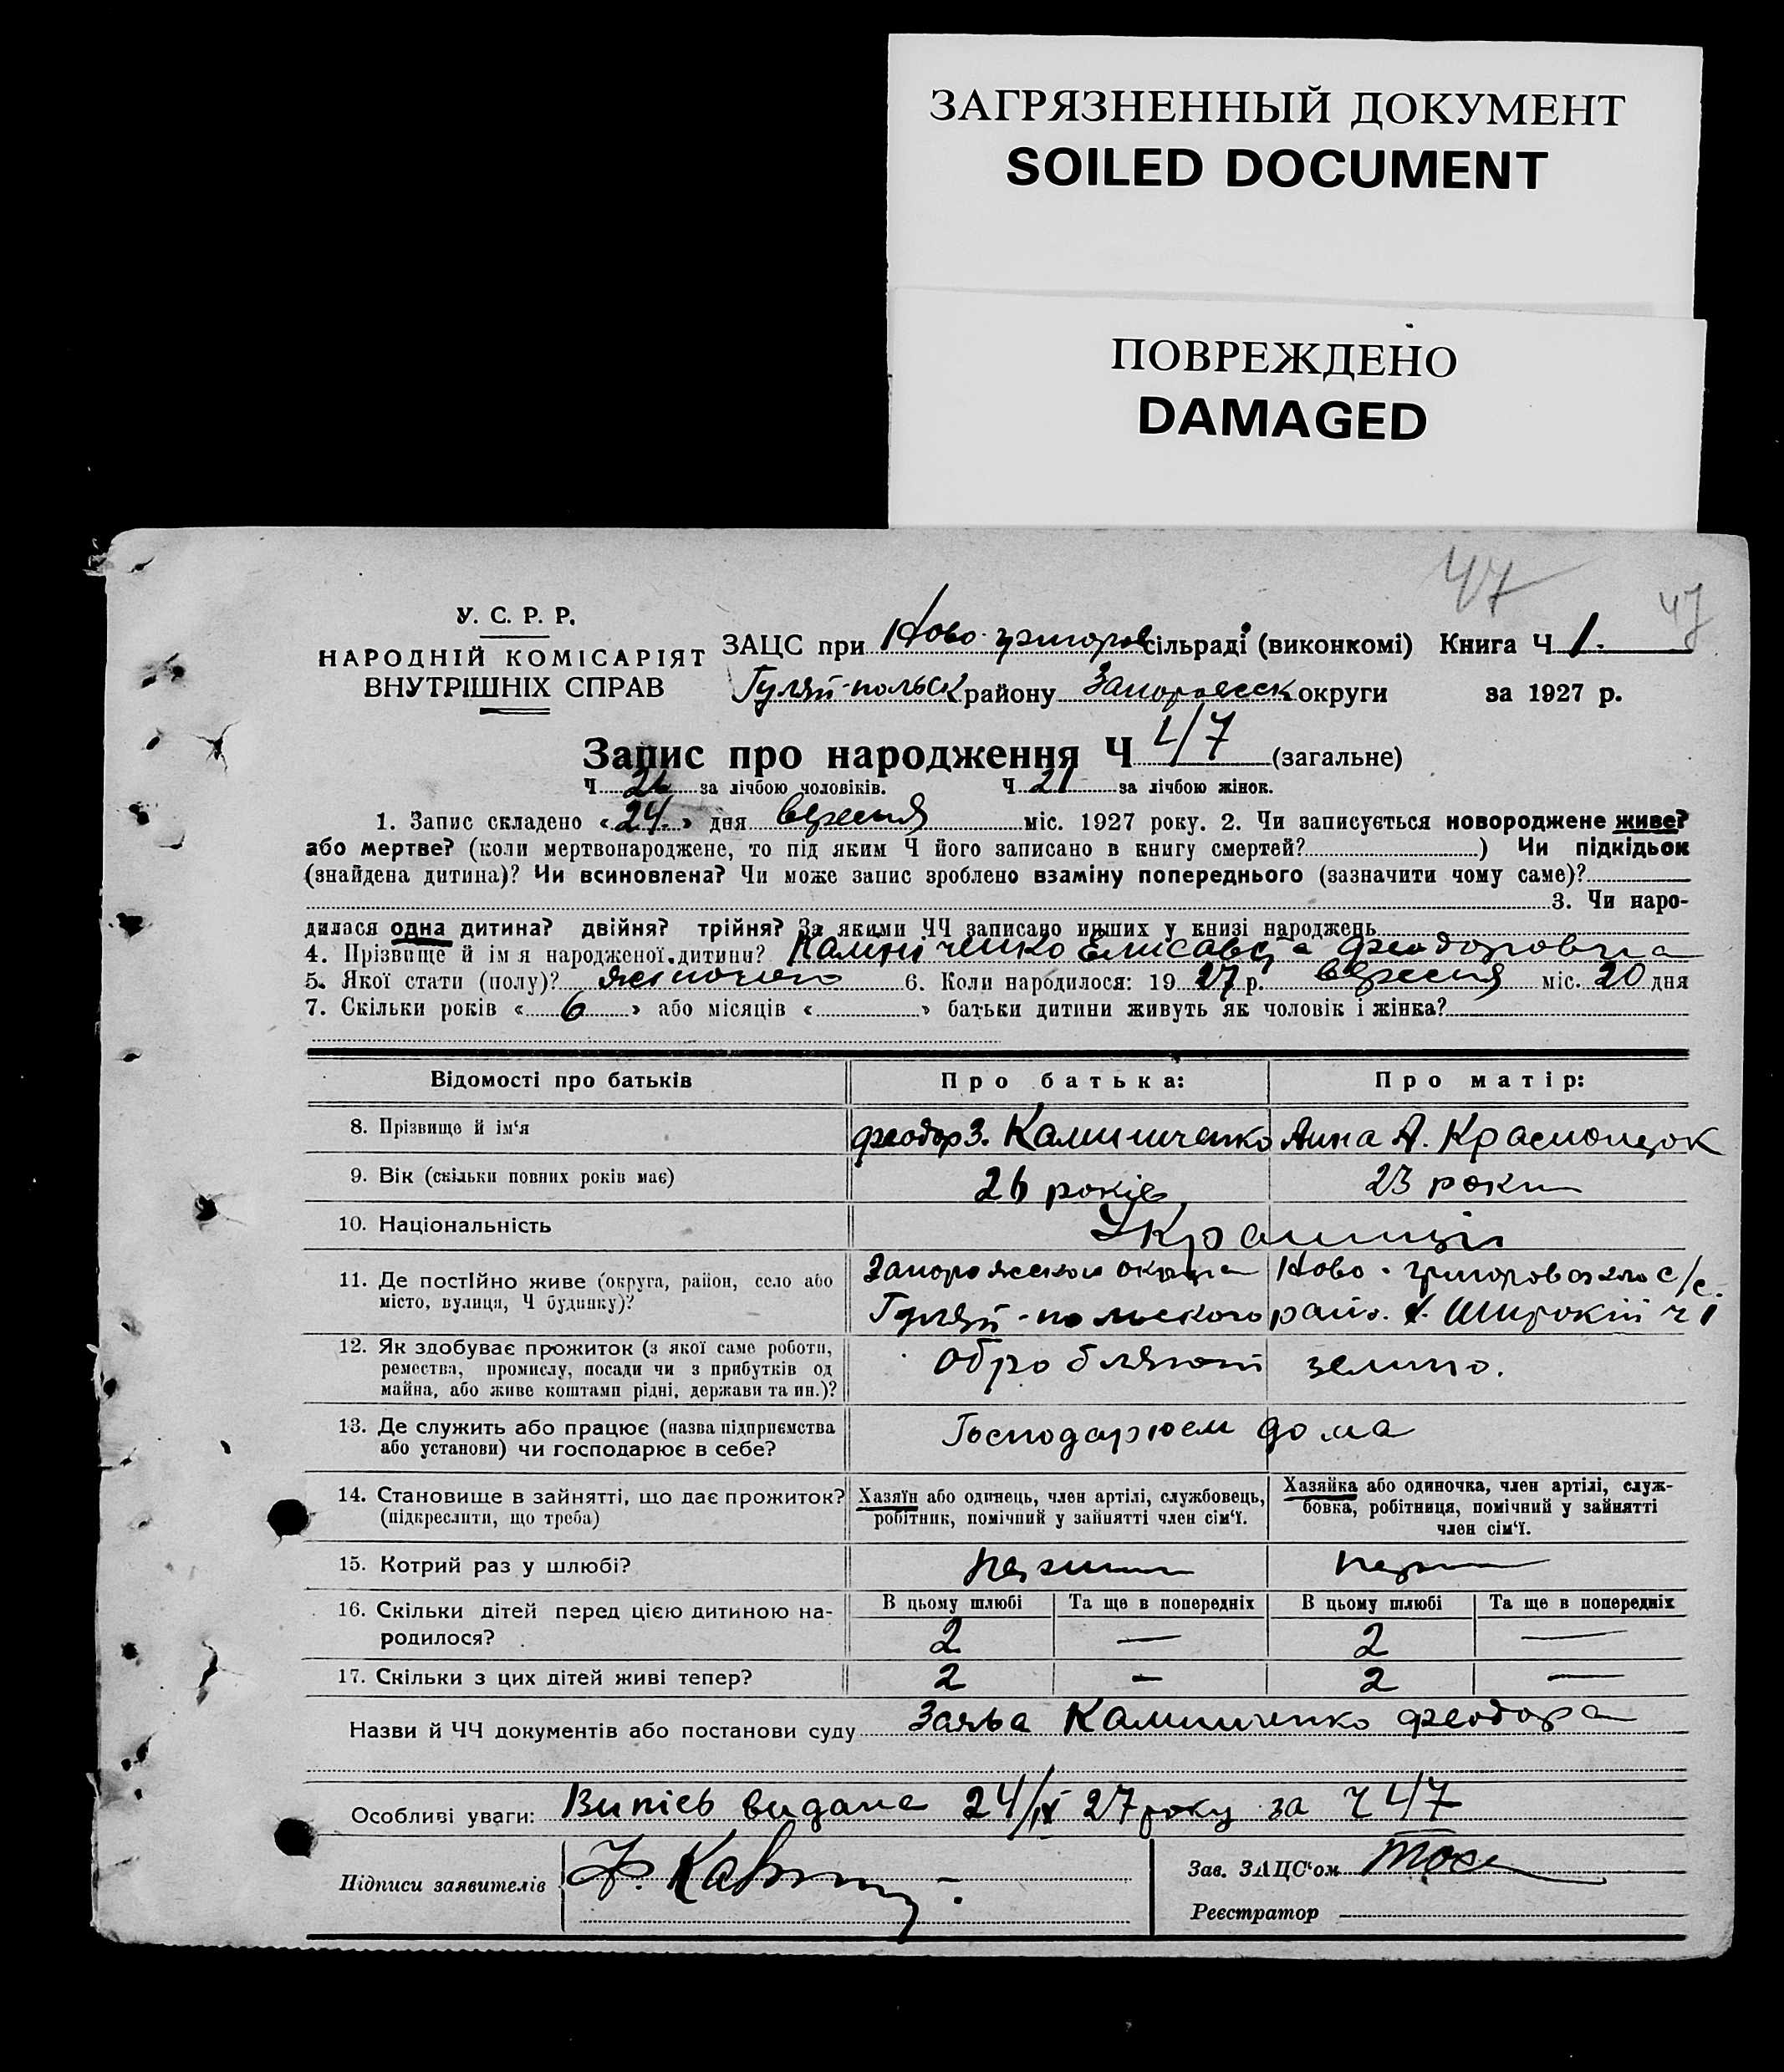 ЗАГРЯЗНЕННЫЙ ДОКУМЕНТ
SOILED DOCUMENT
ПОВРЕЖДЕНО
DAMAGED
47 47
У. С. Р. Р.
НАРОДНІЙ КОМІСАРІЯТ
ВНУТРІШНІХ СПРАВ
ЗАЦС при Ново-григоров сільраді (виконкомі) Книга Ч 1.
Гуляй-польськ району Запорожськ округи за 1927 р.
Запис про народження Ч 47 (загальне)
Ч 26 за лічбою чоловіків. Ч 21 за лічбою жінок.
1. Запис складено «24» дня вересня міс. 1927 року. 2. Чи записується новороджене живе?
або мертве? (коли мертвонароджене, то під яким Ч його записано в книгу смертей? ) Чи підкідьок
(знайдена дитина)? Чи всиновлена? Чи може запис зроблено взаміну попереднього (зазначити чому саме)?
3. Чи наро-
дилася одна дитина? двійня? трійня? За якими ЧЧ записано инших у книзі народжень
4. Прізвище й ім'я народженої дитини? Калініченко Елисавета Феодоровна
5. Якої стати (полу)? жіночого 6. Коли народилося: 1927 р. вересня міс. 20 дня
7. Скільки років «6» або місяців « » батьки дитини живуть як чоловік і жінка?
Відомості про батьків Про батька: Про матір:
8. Прізвище й ім'я Феодор З. Калиниченко Анна А.
9. Вік (скільки повних років має) 26 років 23 роки
10. Національність Українці
11. Де постійно живе (округа, район, село або Запорожської округи Ново-григоровського с/с.
місто, вулиця, Ч будинку)? Гуляй-польского район. х. Широкий ч 1
12. Як здобуває прожиток (з якої саме роботи,
ремества, промислу, посади чи з прибутків од Обробляют землю.
майна, або живе коштами рідні, держави та ин.)?
13. Де служить або працює (назва підприємства
або установи) чи господарює в себе? Господарюєм дома
14. Становище в зайнятті, що дає прожиток? Хазяїн або одинець, член артілі, службовець, Хазяйка або одиночка, член артілі, служ-
(підкреслити, що треба) робітник, помічний у зайнятті член сім'ї. бовка, робітниця, помічний у зайнятті
член сім'ї.
15. Котрий раз у шлюбі?
16. Скільки дітей перед цією дитиною на- В цьому шлюбі Та ще в попередніх В цьому шлюбі Та ще в попередніх
родилося? 2 — 2 —
17. Скільки з цих дітей живі тепер? 2 — 2 —
Назви й ЧЧ документів або постанови суду Заява Калиниченко Феодора
Особливі уваги: Випись видана 24/IX 27 року за Ч 47
Підписи заявителів Зав. ЗАЦС'ом
Реєстратор